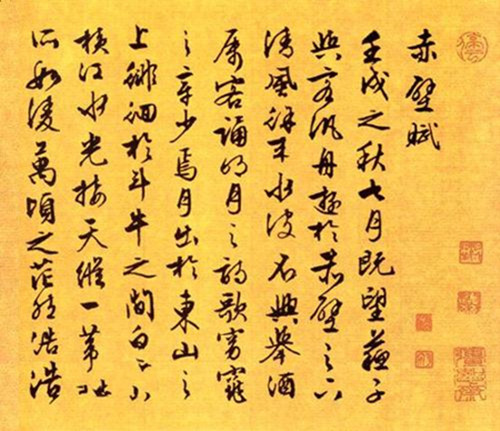 赤壁賦
壬戌之秋七月既望蘇子
與客汎舟遊於赤壁之下
清風徐来水波不興舉酒
属客誦明月之詩歌窈窕
之章少焉月出於東山之
上徘徊於斗牛之間白露
橫江水光接天縱一葦之
所如凌萬頃之茫然浩浩